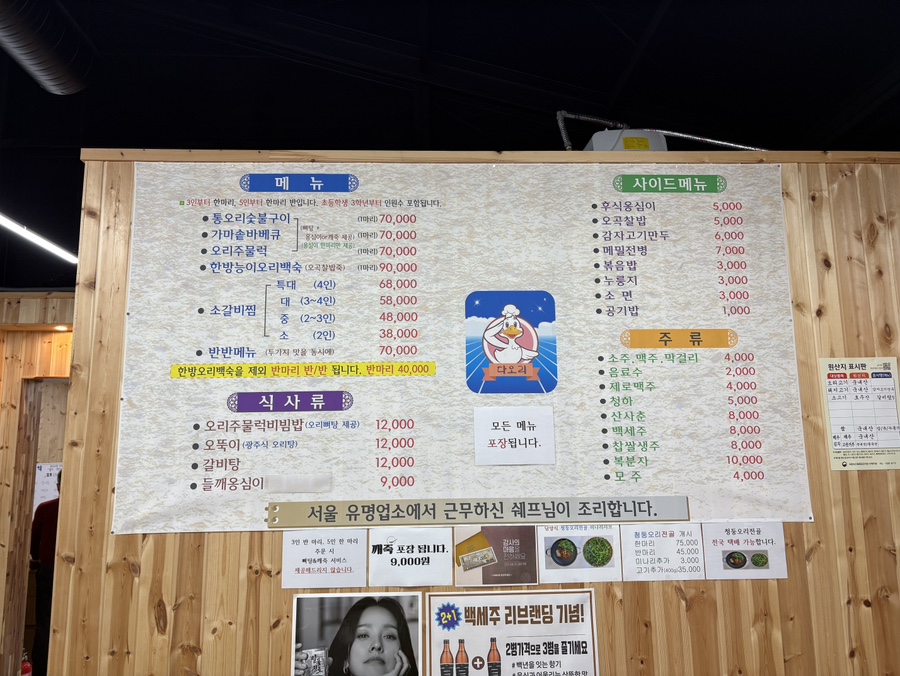 메 뉴
3인부터 한마리, 5인부터 한마리 반입니다. 초등학생 3학년부터 인원수 포함됩니다.
통오리숯불구이 (1마리) 70,000
가마솥바베큐 (1마리) 70,000
오리주물럭 (1마리) 70,000
(뼈탕 +
옹심이or깨죽 제공)
(옹심이 한마리만 제공)
한방능이오리백숙 (오곡찰밥죽) (1마리) 90,000
소갈비찜
특대 (4인) 68,000
대 (3~4인) 58,000
중 (2~3인) 48,000
소 (2인) 38,000
반반메뉴 (두가지 맛을 동시에) 70,000
한방오리백숙을 제외 반마리 반/반 됩니다. 반마리 40,000
식 사 류
오리주물럭비빔밥 (오리뼈탕 제공) 12,000
오뚝이 (광주식 오리탕) 12,000
갈비탕 12,000
들깨옹심이 9,000
다오리
모든 메뉴
포장됩니다.
사이드메뉴
후식옹심이 5,000
오곡찰밥 5,000
감자고기만두 6,000
메밀전병 7,000
볶음밥 3,000
누룽지 3,000
소 면 3,000
공기밥 1,000
주 류
소주, 맥주, 막걸리 4,000
음료수 2,000
제로맥주 4,000
청하 5,000
산사춘 8,000
백세주 8,000
찹쌀생주 8,000
복분자 10,000
모 주 4,000
원산지 표시판
서울 유명업소에서 근무하신 쉐프님이 조리합니다.
3인 반 마리, 5인 한 마리
주문 시
뼈탕&깨죽 서비스
제공해드리지 않습니다.
깨죽 포장 됩니다.
9,000원
감사의
마음을
청둥오리전골 개시
한마리 75,000
반마리 45,000
미나리추가 3,000
고기추가(400g) 35,000
청둥오리전골
전국 택배 가능합니다.
2+1 백세주 리브랜딩 기념!
2병가격으로 3병을 즐기세요
# 백년을 잇는 향기